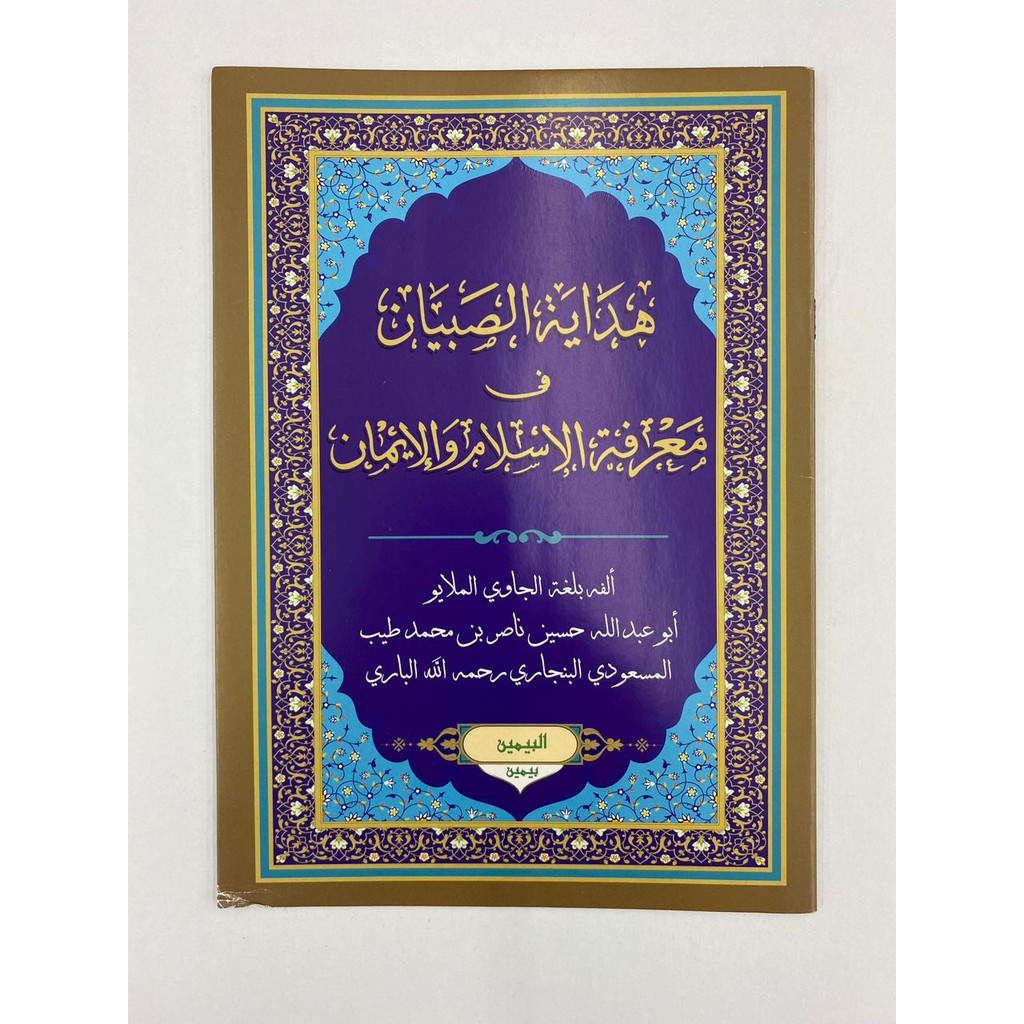 هداية الصبيان
في
مَعْرفة الإسلام وَالإيمْان
ألفه بلغة الجاوي الملايو
أبو عبد الله حسين ناصر بن محمد طيب
المسعودي البنجاري رحمه الله الباري
البيمين
بيمين